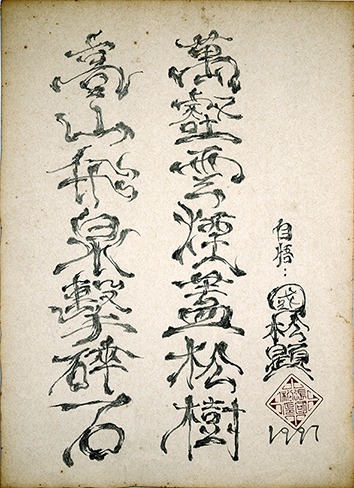 自悟：
松题
1997
萬壑雲煙蓋松樹
高山飛泉擊碎石